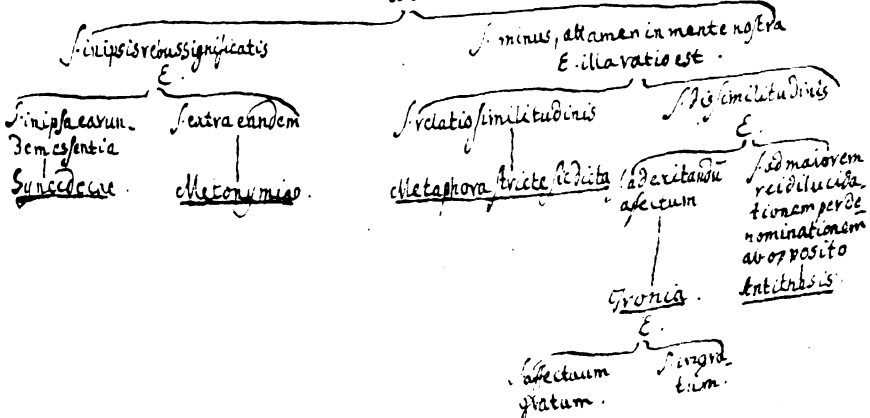 S. in ipsis rebus significatis
E.
S. minus, attamen in mente nostra
E. illa ratio est.
S. in ipsa earun-
dem essentia
Synecdoche.
S. extra eandem
Metonymia.
S. relatio similitudinis
Metaphora stricte sic dicta
S. dissimilitudinis
E.
S. ad excitandū
afectum
Ironia.
E.
S. afectuum
gratum.
S. ingra-
tum.
S. ad maiorem
rei dilucida-
tionem per de-
nominationem
ab opposito
Antithesis.